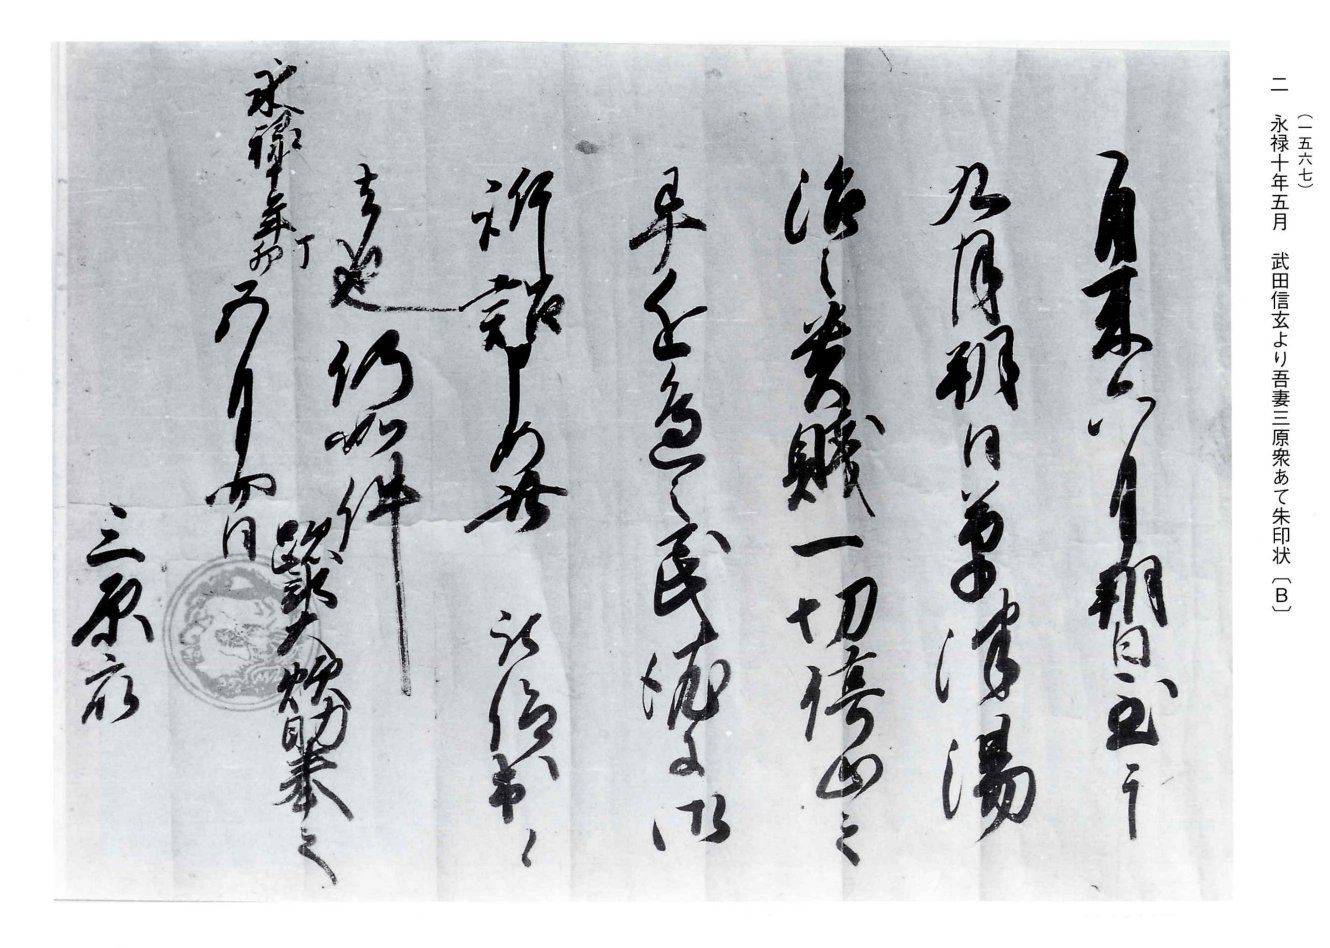 (一五六七)
二 永禄十年五月 武田信玄より吾妻三原衆あて朱印状〔B〕
自来六月朔日至于
九月朔日草津湯
治之貴賤一切停止之
畢近邊之民
訴詔申如此
者也仍如件
永禄十年丁卯
五月四日
跡部大炊助奉之
三原衆